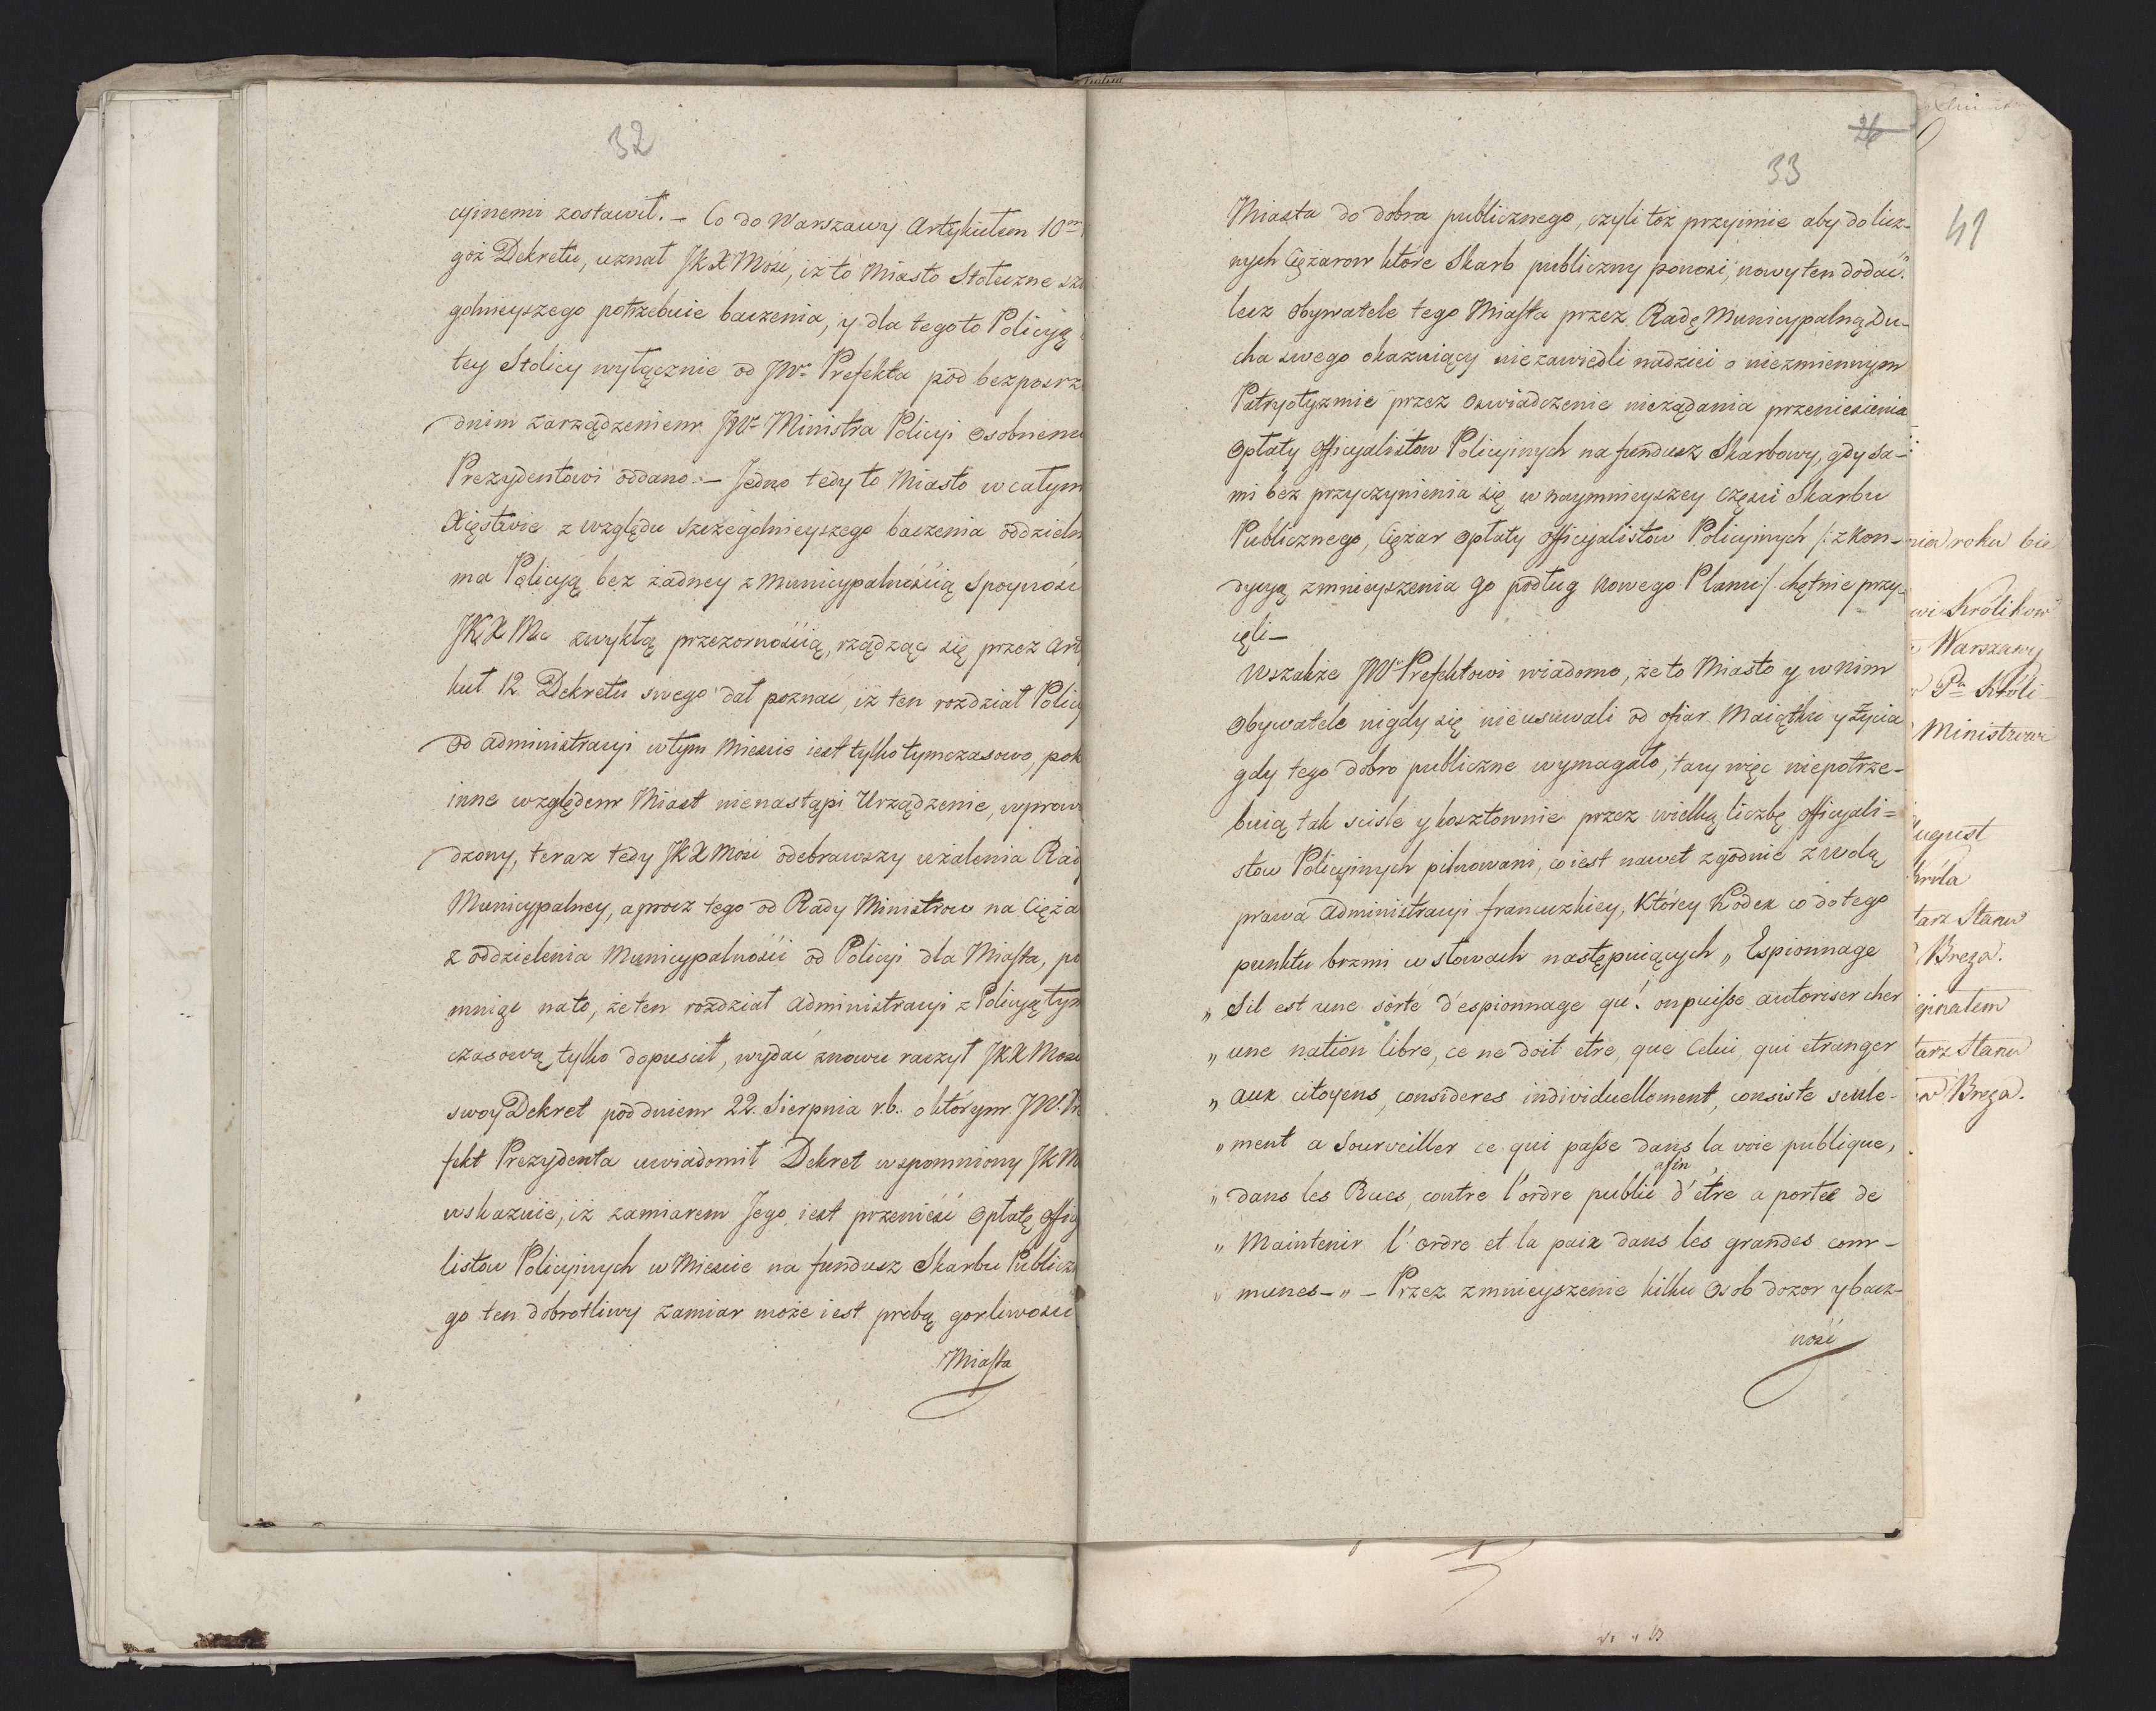 32
cyinemi zostawił. – Co do Warszawy Artykułem 10m
goż Dekretu, uznał JKXMość, iż to Miasto Stołeczne
gólnieyszego potrzebuie baczenia, y dla tego to Policyją
tey Stolicy wyłącznie od JWo Prefekta pod bezposrz
dnim zarządzeniem JWo Ministra Policyi Osobnemu
Prezydentowi oddano. – Jedno tedy to Miasto w całym
Xięstwie z względu szczegolnieyszego baczenia oddzieln
ma Policyją bez żadney z Municypalnością Spoynośc
JKXMć zwykłą przezornością, rządząc się przez Art
kuł 12 Dekretu swego dał poznać, iż ten rozdział Policy
od administracyi w tym Miescie iest tylko tymczasowo, pok
inne względem Miast nienastąpi Urządzenie, wprow
dzony, teraz tedy JKXMość odebrawszy użalenia Rad
Municypalney, a procz tego od Rady Ministrow na Cięża
z oddzielenia Municypalności od Policyi dla Miasta, po
mniąc na to, że ten rozdział administracyi z Policyją tym
czasową tylko dopuscił, wydać znowu raczył JKXMość
swoy Dekret pod dniem 22. Sierpnia r.b. o którym JW. Pre
fekt Prezydenta uwiadomił Dekret wspomniony JKM
wskazuie, iż zamiarem Jego iest przenieść Opłatę Officy
listow Policyinych w Miescie na fundusz Skarbu Publiczn
go ten dobrotliwy zamiar może iest probą gorliwości
Miasta
26
33
Miasta do dobra publicznego, czyli toż przyimie aby do licz-
nych Ciężarow które Skarb publiczny ponosi, nowy ten dodać."
lecz Obywatele tego Miasta przez Radę Municypalną Du-
cha swego okazuiący niezawiedli nadziei o niezmiennym
Patryotyzmie przez Oswiadczenie nieżądania przeniesienia
Opłaty Officyalistow Policyinych na fundusz Skarbowy, gdy sa-
mi bez przyczynienia się w naymnieyszey części Skarbu
Publicznego, Ciężar Opłaty Officyalistow Policyinych /: z kon-
dycyą zmnieyszenia go podług nowego Planu :/ chętnie przy-
ięli –
Wszakże JWo Prefektowi wiadomo, że to Miasto y w nim
Obywatele nigdy się nieusuwali od ofiar Maiątku y życia
gdy tego dobro publiczne wymagało, tacy więc niepotrze-
buią tak scisle y kosztownie przez wielką liczbę Officyali=
stow Policyinych pilnowani, co iest nawet zgodnie z wolą
prawa Administracyi francuzkiey, Którey Kodex co do tego
punktu brzmi w słowach następuiących „ Espionnage
„ Sil est une sorte d'espionnage qu' on puisse autoriser cher
„ une nation libre, ce ne doit etre, que Celui, qui etranger
„ aux citoyens, consideres individuellement, consiste seule-
„ ment a Sourveiller ce qui passe dans la voie publique,
„ dans les Rues, contre l'ordre public afin d'étre a portee de
„ Maintenir l'ordre et la paix dans les grandes com-
„ munes – „ – Przez zmnieyszenie kilku Osob dozor y bacz-
ność
41
nia roku bie
wi Królikow
Warszawy
Pa Króli
Ministrow
August
Króla
tarz Stanu
Breza.
ginałem
tarz Stanu
Breza.